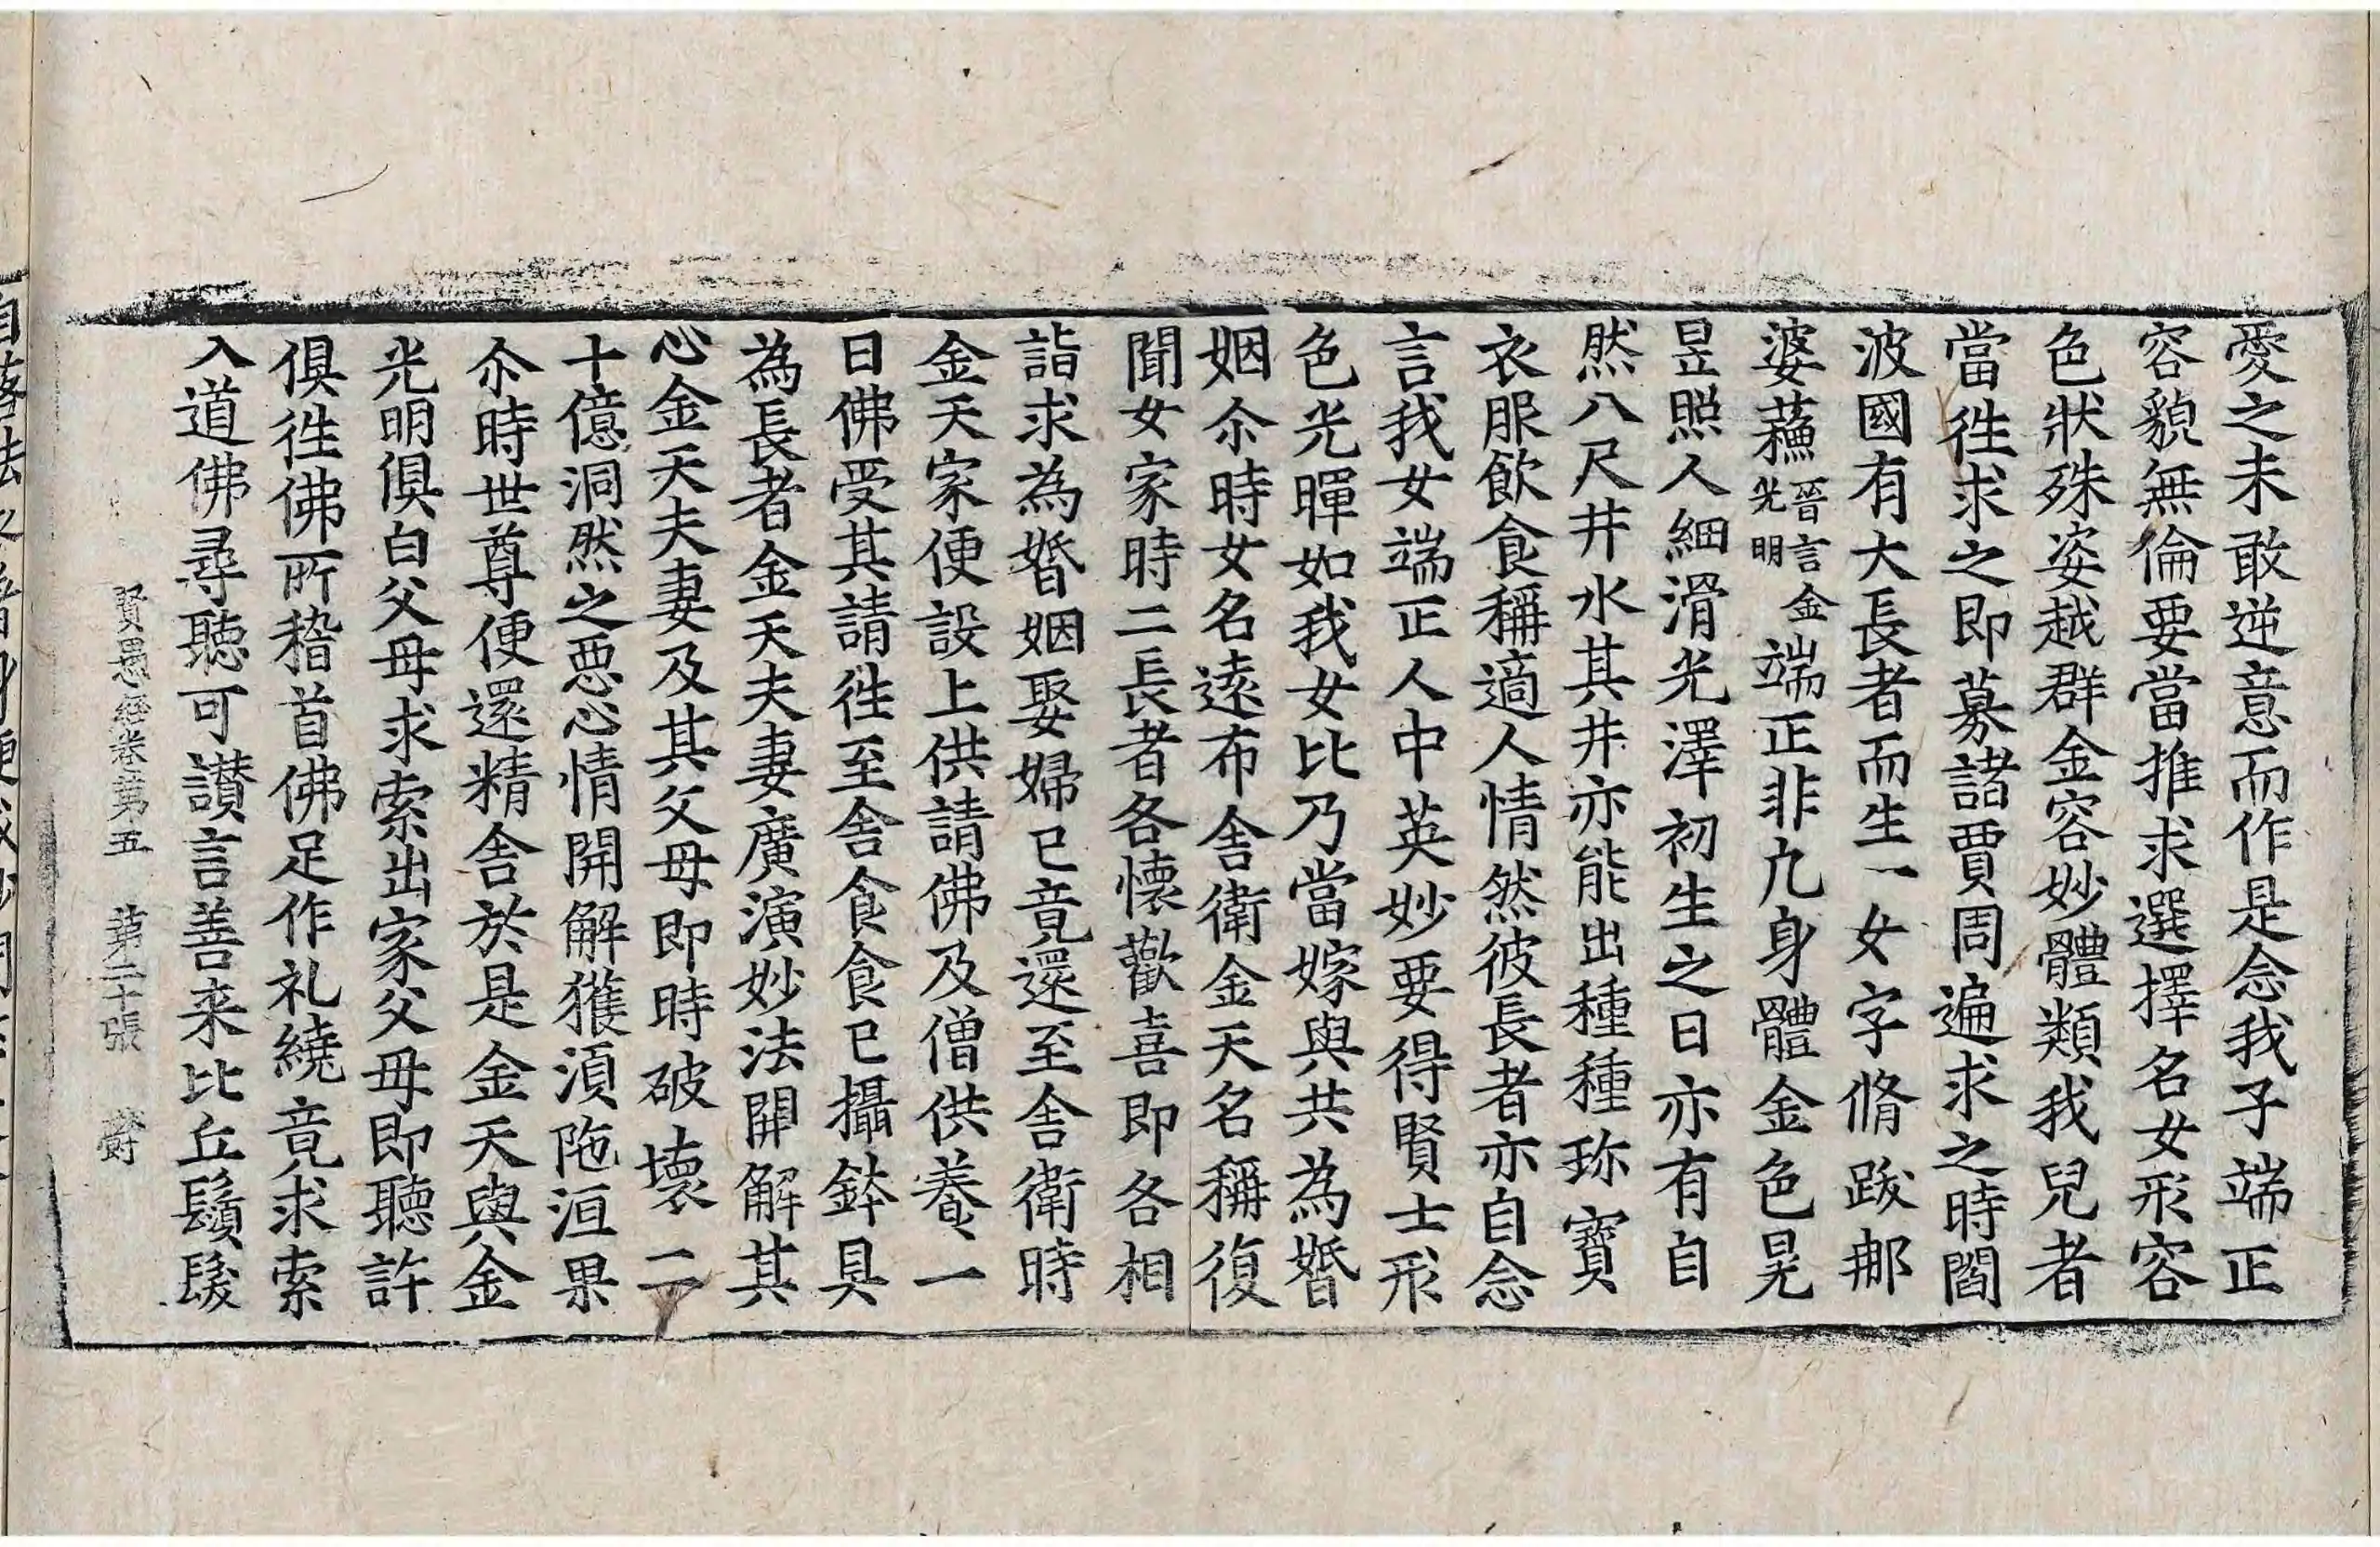 愛之未敢逆意而作是念我子端正
容貌無倫要當推求選擇名女形容
色狀殊姿越群金容妙體類我兒者
當徃求之即募諸賈周遍求之時閻
波國有大長者而生一女字脩跋那
婆蘓晉言金光明端正非凢身體金色晃
昱照人細滑光澤初生之日亦有自
然八尺井水其井亦能出種種珎寶
衣服飲食稱適人情然彼長者亦自念
言我女端正人中英妙要得賢士形
色光暉如我女比乃當嫁與共為婚
姻尒時女名逺布舍衛金天名稱復
聞女家時二長者各懷歡喜即各相
詣求為婚姻娶婦已竟還至舍衛時
金天家便設上供請佛及僧供養一
日佛受其請徃至舍食食已攝鉢具
為長者金天夫妻廣演妙法開解其
心金天夫妻及其父母即時破壞二
十億洞然之惡心情開解獲湏陁洹果
尒時世尊便還精舍於是金天與金
光明俱白父母求索出家父母即聽許
俱徃佛所稽首佛足作礼繞竟求索
入道佛尋聽可讃言善来比丘鬚髮
賢愚經卷第五　第二十張